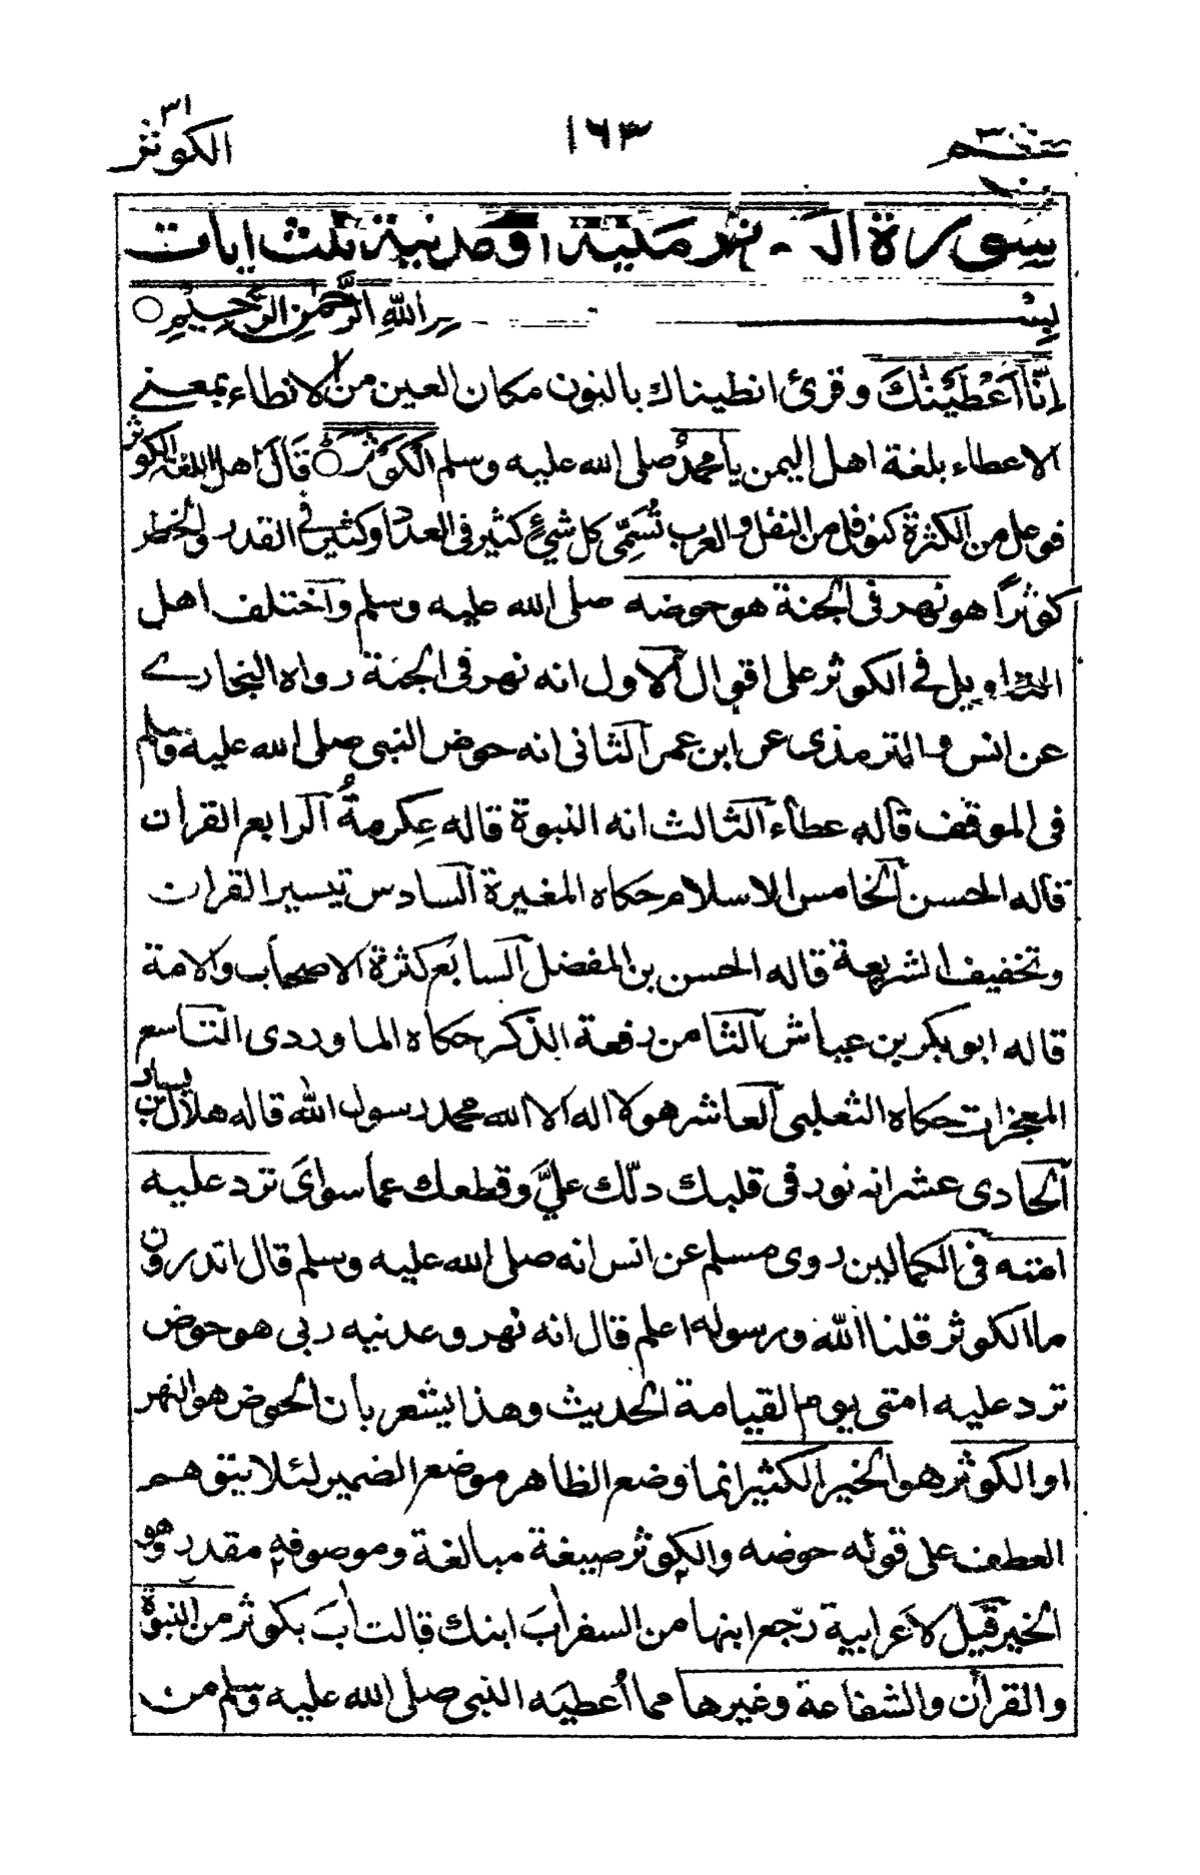 عم ٣٠ ١٦٣ الكوثر ٣١
سورة الكوثر مكية او مدنية ثلث ايات
بسم الله الرحمن الرحيم ○
اِنَّآ اَعْطَيْنٰكَ وقرئ انطيناك بالنون مكان العين من الانطاء بمعنى
الاعطاء بلغة اهل اليمن يا محمدُ صلى الله عليه وسلم الْكَوْثَرَ ○ قَالَ اهل اللغة الكوثر
فوعل من الكثرة كنوفل من النفل والعرب تُسَمِّى كل شيءٍ كثير فى العدد او كثير فى القدر والخطر
كوثراً هو نهر فى الجنة هو حوضه صلى الله عليه وسلم واختلف اهل
التاويل فى الكوثر على اقوال الاول انه نهر فى الجنة رواه البخارى
عن انس والترمذى عن ابن عمر الثانى انه حوض النبى صلى الله عليه وسلم
فى الموقف قاله عطاء الثالث انه النبوة قاله عِكرمةُ الرابع القرأن
قاله الحسن الخامس الاسلام حكاه المغيرة السادس تيسير القرأن
وتخفيف الشريعة قاله الحسن بن المفضل السابع كثرة الاصحاب والامة
قاله ابو بكر بن عياش الثامن رفعة الذكر حكاه الماوردى التاسع
المعجزات حكاه الثعلبى العاشر هو لا اله الا الله محمد رسول الله قاله هلال بن يسار
الحادى عشر انه نور فى قلبك دلّك علىَّ وقطعك عما سواىَ ترد عليه
امته فى الكمالين روى مسلم عن انس انه صلى الله عليه وسلم قال اتدرون
ما الكوثر قلنا الله ورسوله اعلم قال انه نهر وعدنيه ربى هو حوض
ترد عليه امتى يوم القيامة الحديث وهذا يشعر بان الحوض هو النهر
او الكوثر هو الخير الكثير انما وضع الظاهر موضع الضمير لئلا يتوهم
العطف على قوله حوضه والكوثر صيغة مبالغة وموصوفه مقدر وهو
الخير قيل لاعرابية رجع ابنها من السفر أبَ ابنك قالت أبَ بكوثر من النبوة
والقرأن والشفاعة وغيرها مما اُعطيَه النبى صلى الله عليه وسلم من